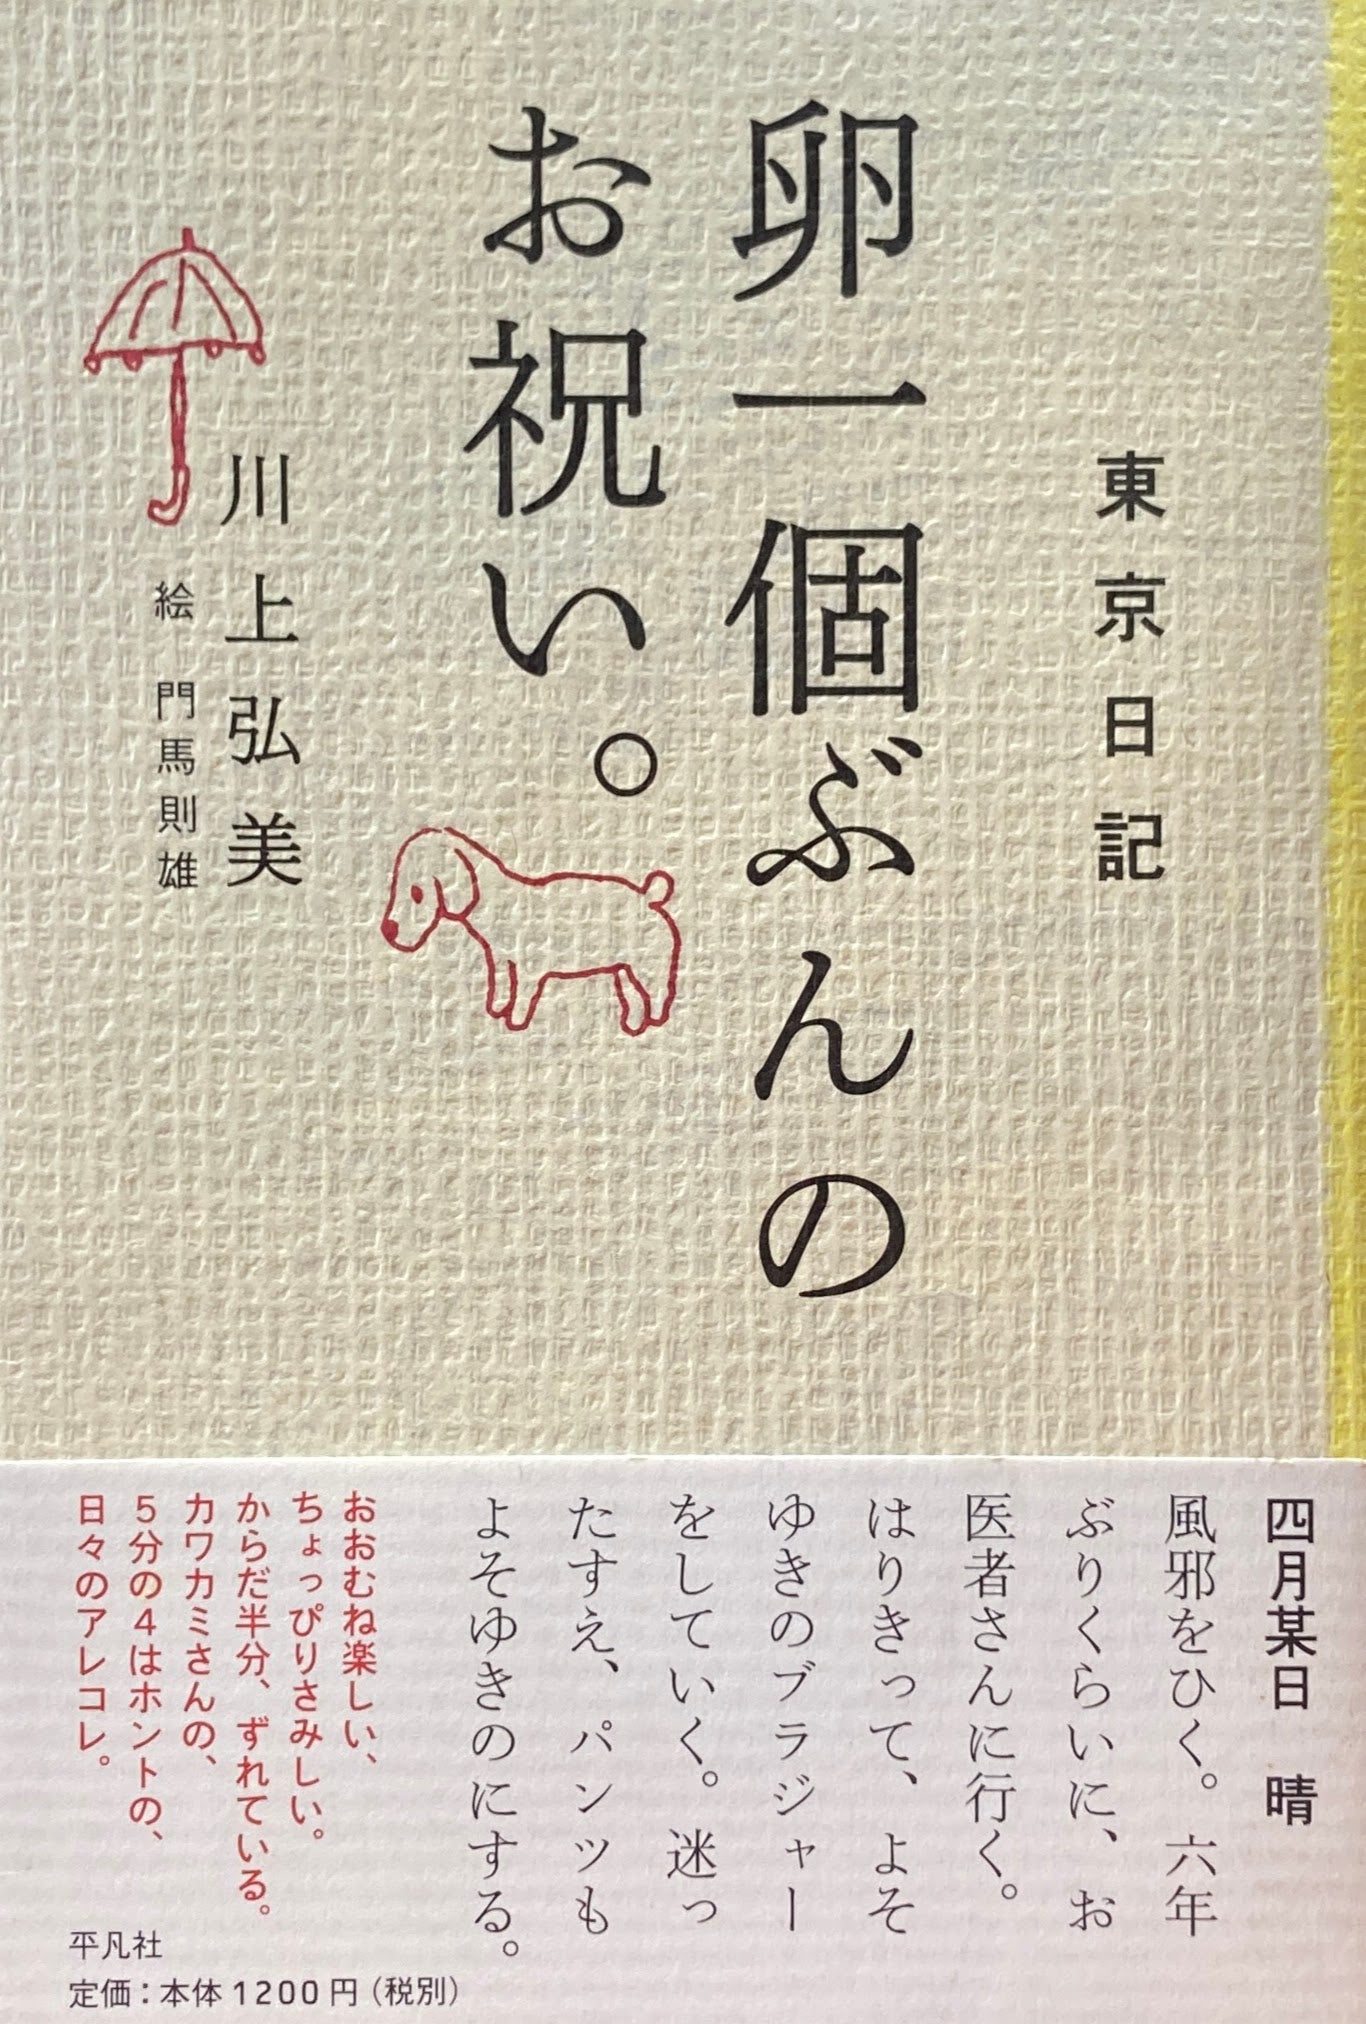 東京日記
卵一個ぶんの
お祝い。
川上弘美
絵 門馬則雄
四月某日 晴
風邪をひく。六年
ぶりくらいに、お
医者さんに行く。
はりきって、よそ
ゆきのブラジャー
をしていく。迷っ
たすえ、パンツも
よそゆきのにする。
おおむね楽しい、
ちょっぴりさみしい。
からだ半分、ずれている。
カワカミさんの、
5分の4はホントの、
日々のアレコレ。
平凡社
定価：本体1200円（税別）